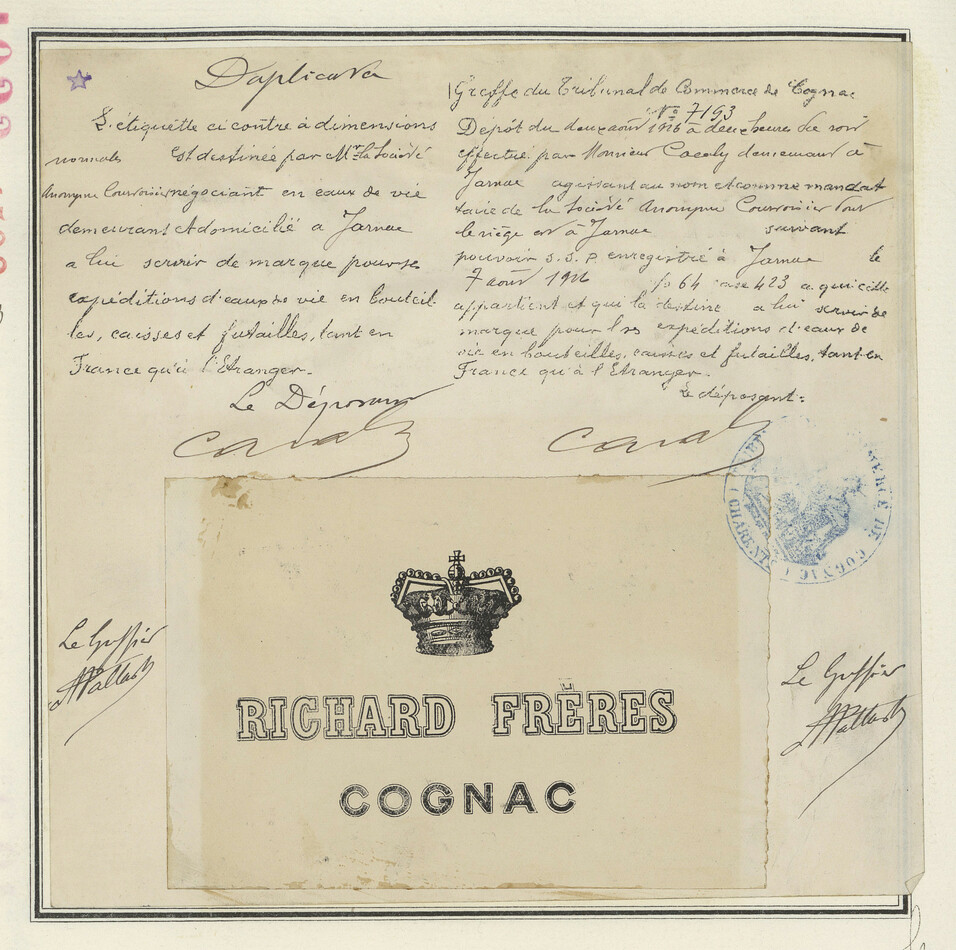 Duplicata
L'étiquette ci contre à dimensions
normales est destinée par Mr la Société
Anonyme Courvoisier négociant en eaux de vie
demeurans et domicilié a Jarnac
a lui servir de marque pour se
expéditions d'eaux de vie en bouteil-
les, caisses et futailles, tant en
France qu'à l'Etranger.-
Le Déposant
Greffe du Tribunal de Commerce de Cognac
No 7193
Dépôt du deux août 1926 à deux heures du soir
effectué par Monsieur demeurant à
Jarnac agissant au nom et comme mandat
taire de la Société Anonyme Courvoisier dont
le siège est à Jarnac suivant
pouvoir s.s.p. enregistré à Jarnac le
7 août 1926 fo 64 case 423 a qui cette
appartient et qui la destine a lui servir de
marque pour les expéditions d'eaux de
vie en bouteilles, caisses et futailles, tant en
France qu'à l'Etranger.-
Le déposant:
MERCE DE COGNAC (CHARENTE)
Le Greffier
RICHARD FRÈRES
COGNAC
Le Greffier